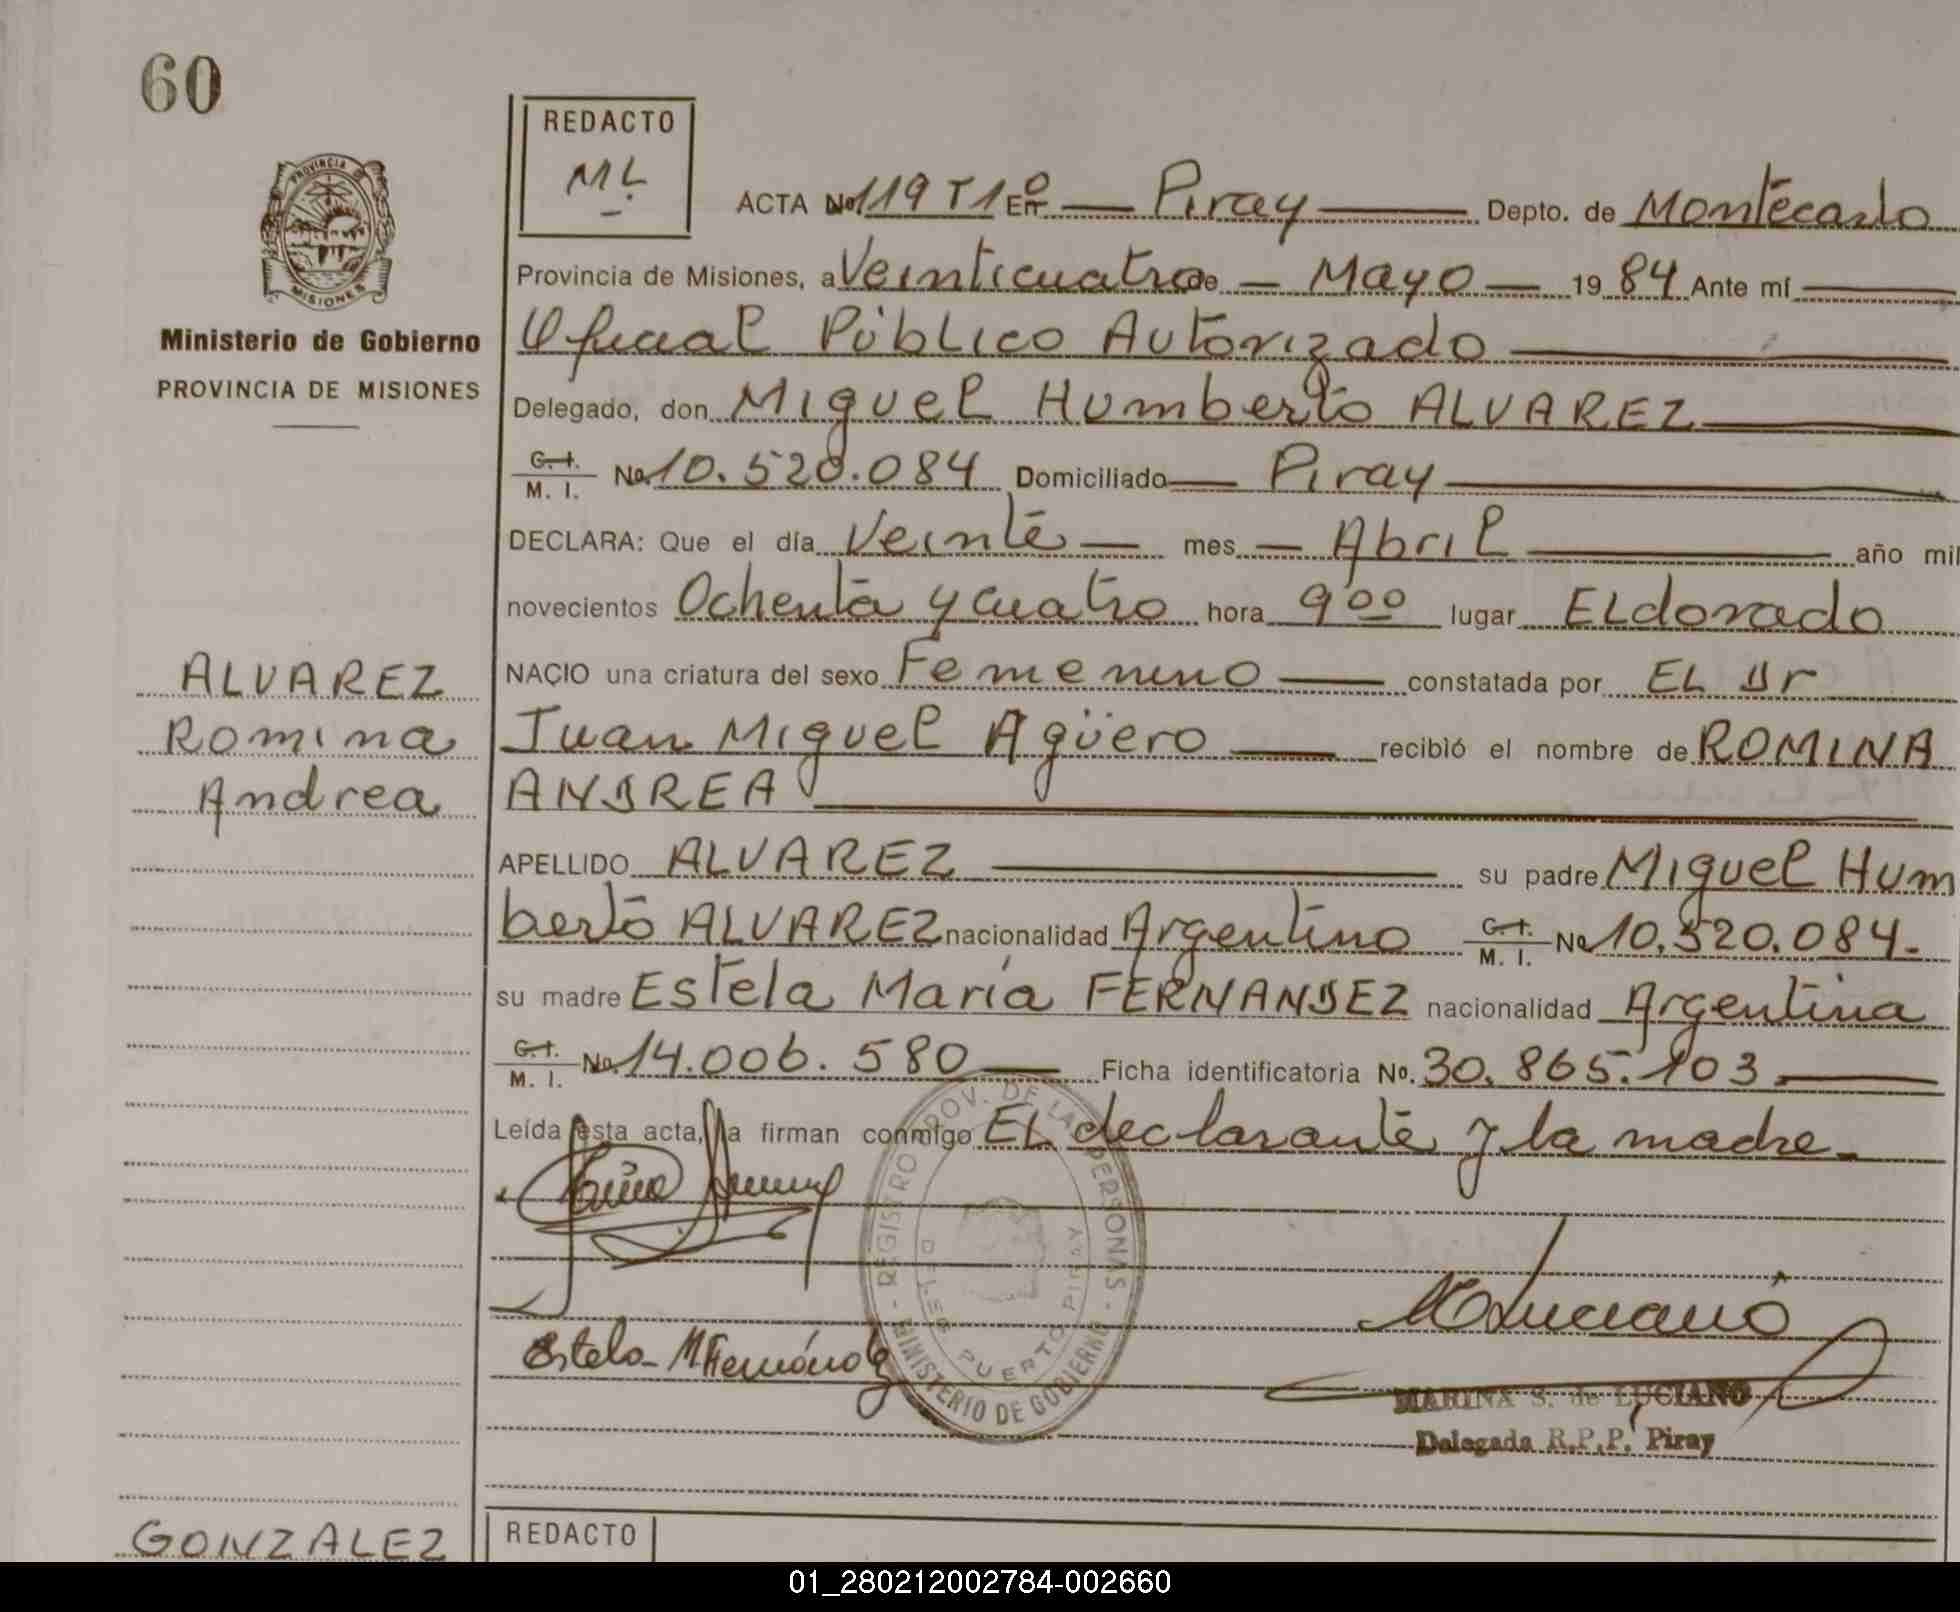 60
REDACTO
ML
ACTA No 119 T1º En Piray Depto. de Montecarlo
PROVINCIA DE MISIONES
Provincia de Misiones, a Veinticuatro de Mayo 19 84 Ante mí
Ministerio de Gobierno
PROVINCIA DE MISIONES
Oficial Público Autorizado
Delegado, don Miguel Humberto ALVAREZ
C.I. M. I. No. 10.520.084 Domiciliado Piray
DECLARA: Que el día Veinte mes Abril año mil
novecientos Ochenta y cuatro hora 9 00 lugar ELdorado
ALVAREZ
Romina
Andrea
NACIO una criatura del sexo Femenino constatada por EL Dr
Juan Miguel Agüero recibió el nombre de ROMINA
ANDREA
APELLIDO ALVAREZ su padre Miguel Hum
berto ALVAREZ nacionalidad Argentino C.I. M. I. No 10.520.084.
su madre Estela María FERNANDEZ nacionalidad Argentina
C.I. M. I. No. 14.006.580 Ficha identificatoria No. 30.865.103
Leída esta acta, la firman conmigo EL declarante y la madre.
REGISTRO PROV. DE LAS PERSONAS - MINISTERIO DE GOBIERNO -
DELEG. PUERTO PIRAY
Estela M Fernández
M Luciano
MARINA S. de LUCIANO
Delegada R.P.P. Piray
GONZALEZ
REDACTO
01_280212002784-002660